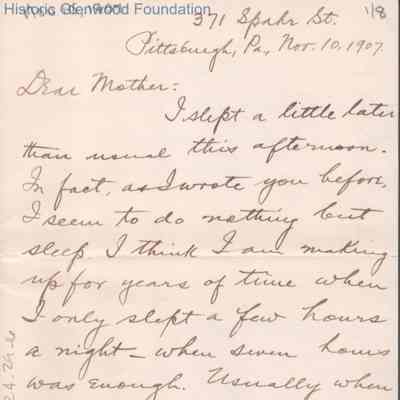 Historic Glenwood Foundation
1/8
371 Spahr St.
Pittsburgh, Pa, Nov. 10, 1907.
Dear Mother:
I slept a little later
than usual this afternoon.
In fact, as I wrote you before,
I seem to do nothing but
sleep I think I am making
up for years of time when
I only slept a few hours
a night – when seven hours
was enough. Usually when